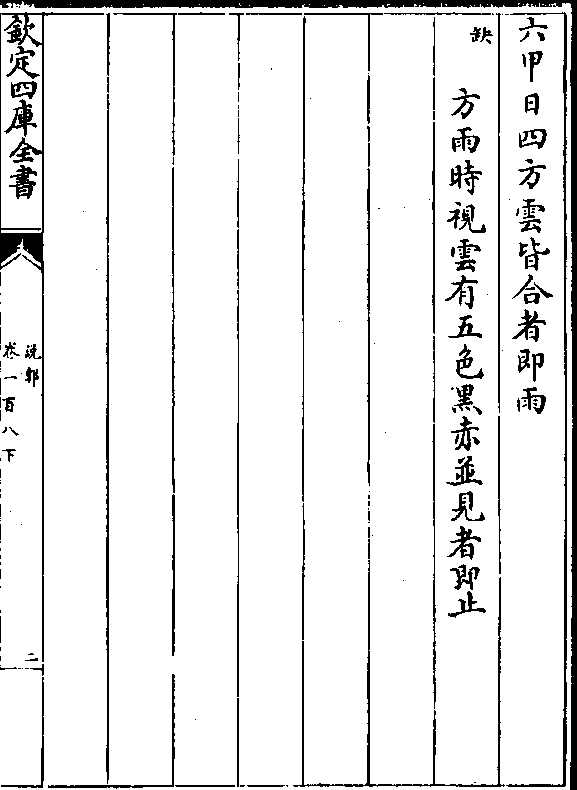 六甲日四方雲皆合者即雨
缺
方雨時視雲有五色黑赤並見者即止
欽定四庫全書
說郛
卷一百八下
二